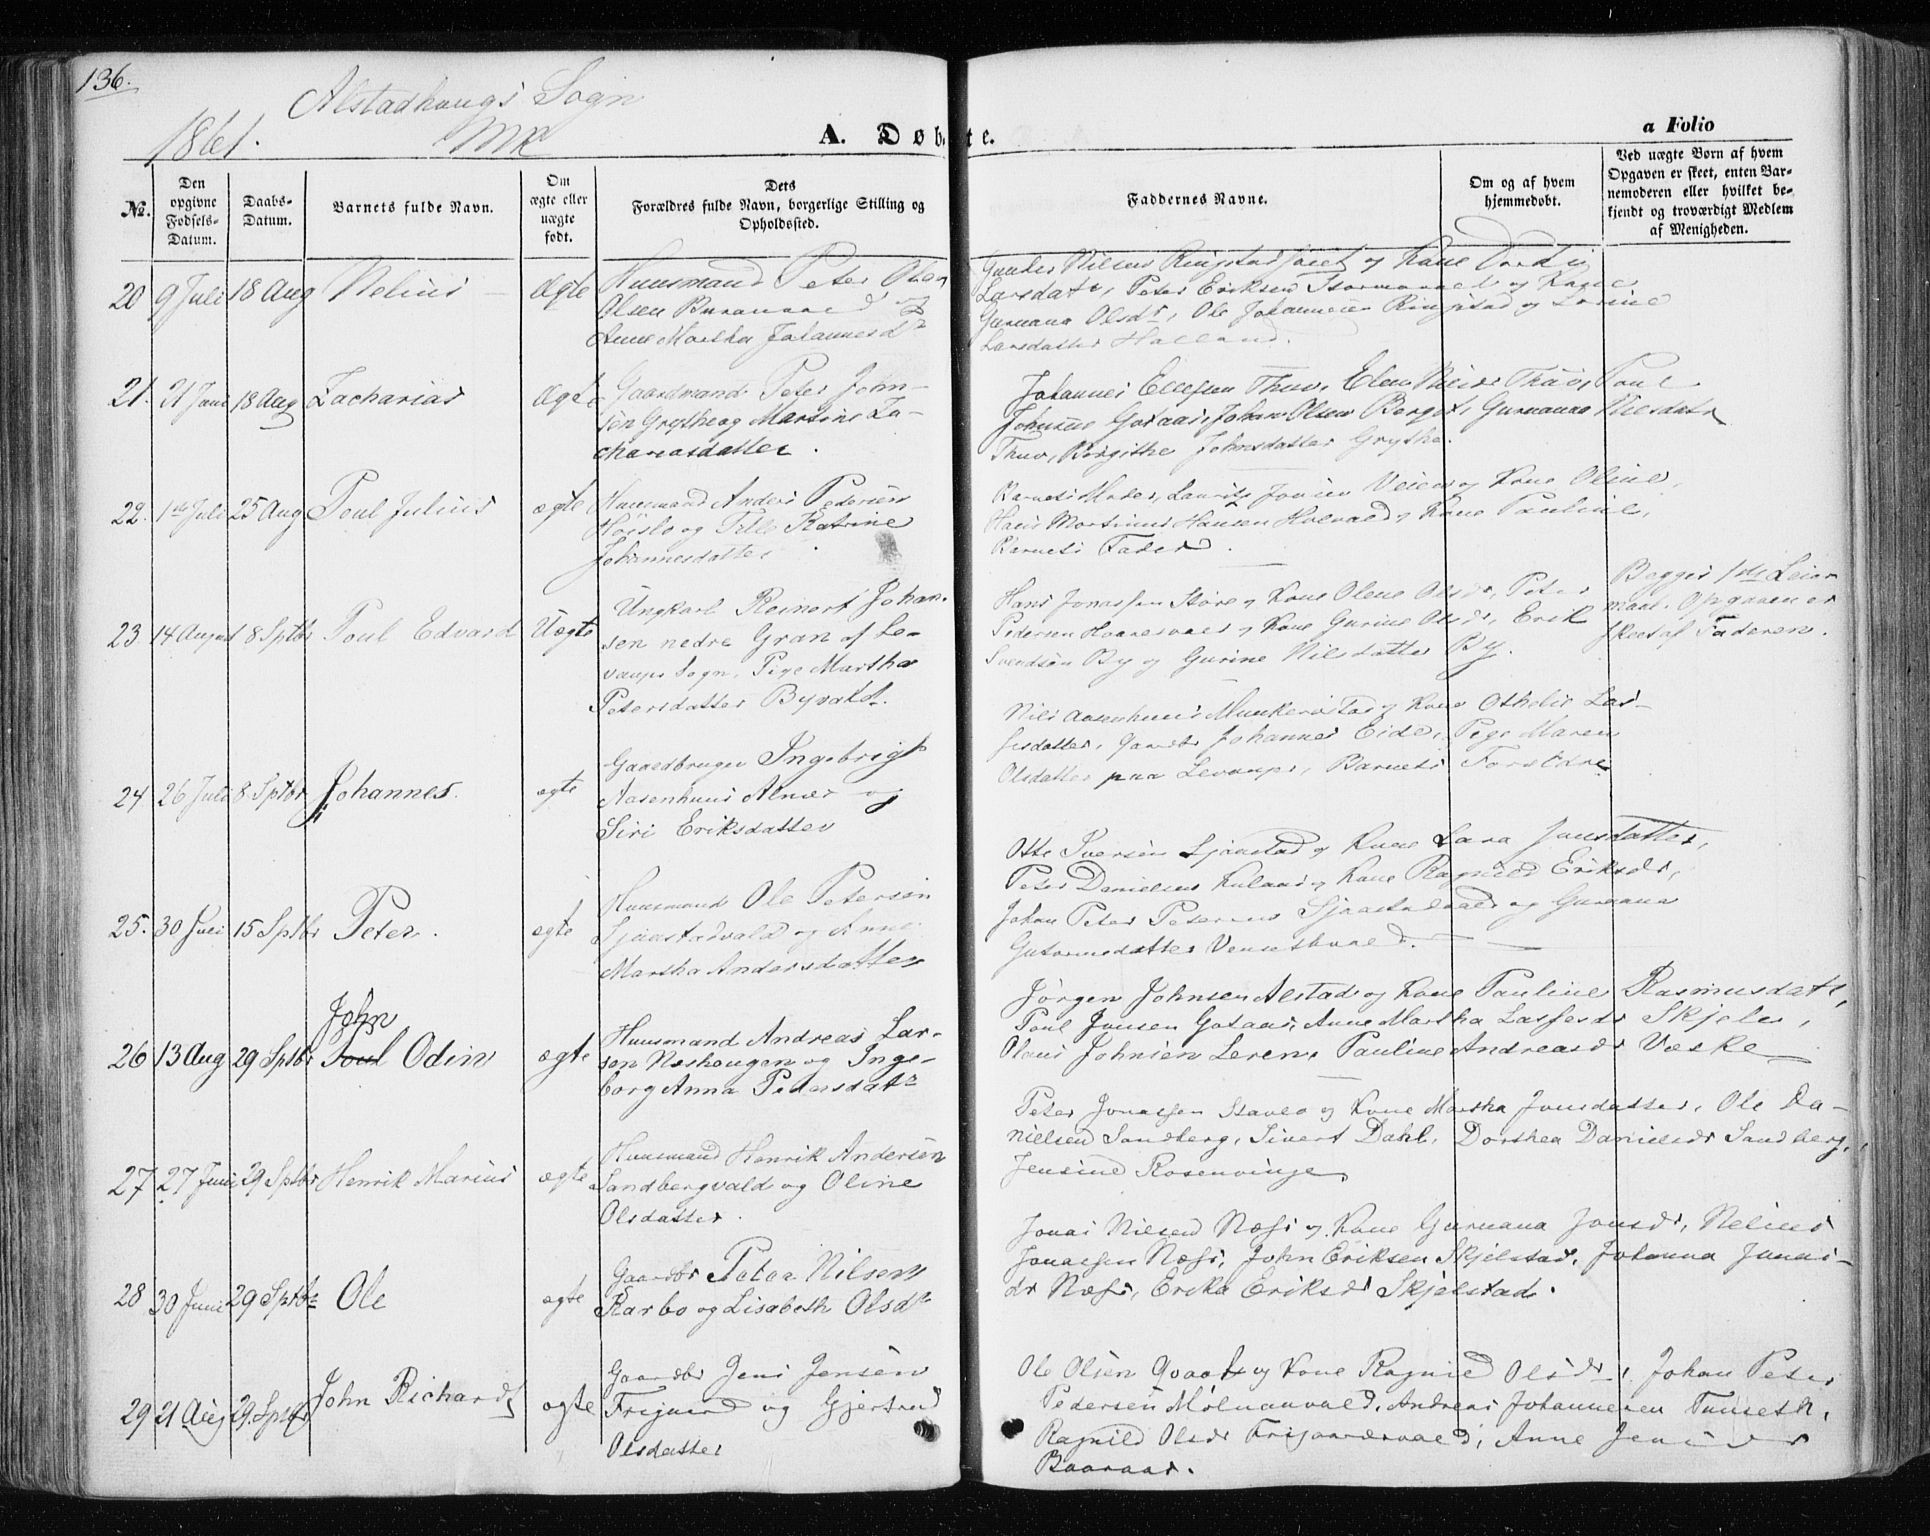 136.
Alstadhougs Sogn
1861. MK
A. Døbte.
a Folio
No.
Den opgivne Fødsels-Datum.
Daabs-Datum.
Barnets fulde Navn.
Om ægte eller uægte født.
Dets Forældres fulde Navn, borgerlige Stilling og Opholdssted.
Faddernes Navne.
Om og af hvem hjemmedøbt.
Ved uægte Børn af hvem Opgaven er skeet, enten Barnemoderen eller hvilket bekjendt og troværdigt Medlem af Menigheden.
20 9 Juli 18 Aug Nelius Ægte
Huusmand Peter
Olsen og
Anne Martha Johannesdr
Nilsen Ringstad og Kone
Larsdatr, Peter Eriksen og Kone
Guruana Olsdr, Ole Johannesen Ringstad og
Larsdatter Halland.
21. 21 Juni 18 Aug Zacharias Ægte
Gaardmand Peter John-
sen Grythe og Martine Za-
chariasdatter.
Johannes Ellefsen Thuv, Elen Nilsdr Thuv, Poul
Johnsen Gotaas, Johan Olsen Berget, Guruanna Nilsdatr
Thuv, Birgithe Johnsdatter Grythe.
22. 1ste Juli 25 Aug Poul Julius ægte
Huusmand Anders Pedersen
og Katrine
Johannesdatter
Barnets Moder, Laurits Veien og Kone Oline,
Hans Martinus Hansen og Kone Pauline,
Barnets Fader.
23 14 August 8 Sptbr Poul Edvard Uægte
Ungkarl Reinert Johan-
sen nedre Gran af Le-
vanger Sogn, Pige Martha
Petersdatter Byvald.
Hans Jonassen Støre og Kone Olene Olsdr, Peter
Pedersen og Kone Gurine Olsdr, Erik
Svendsen By og Gurine Nilsdatter By.
Begges 1ste Leier-
maal. Opgaven er
skeet af Faderen.
24 26 Juli 8 Sptbr Johannes. ægte
Gaardbruger Ingebrigt
Aasenhuus Alnæs og
Siri Eriksdatter
Nils Aasenhuus og Kone Othelie Las-
sesdatter, Gaardbr Johannes Eide, Pige Maren
Olsdatter paa Levanger, Barnets Forældre
25. 30 Juli 15 Sptbr Peter. ægte
Huusmand Ole Petersen
Sjaastadvald og Anne
Martha Andersdatter
Otto Iversen Sjaastad og Kone Lava Jonsdatter,
Peter Danielsen og Kone Ragnild Eriksdr,
Johan Peter Petersen Sjaastadvald og Guruana
Gutormsdatter
26 13 Aug 29 Sptbr John Poul Odin ægte
Huusmand Andreas Lar-
sen Neshaugen og Inge-
borg Anna Petersdatr
Jørgen Johnsen Alstad og Kone Pauline Rasmusdatr,
Poul Jonsen Gotaas, Anne Martha Lassesdr Skjele,
Olaus Johnsen Leren, Pauline Andreasdr Væske
27 27 Juni 29 Sptbr Henrik Marius ægte
Huusmand Henrik Andersen
Sandbergvald og Oline
Olsdatter.
Peter Jonassen Stavlo og Kone Martha Jonsdatter, Ole Da-
nielsen Sandberg, Sivert Dahl, Dorthea Danielsdr Sandberg,
Jensine Rosenvinge
28 30 Juni 29 Sptbr Ole ægte
Gaardbr Peter Nilsen
Karbo og Lisabeth Olsdr
Jonas Nilsen Næss og Kone Guruana Jonsdr, Nelius
Jonassen Næss, John Eriksen Skjelstad, Johanna Jonas-
dr Næss, Erika Eriksdr Skjelstad.
29 21 Aug 29 Sptbr John Richard ægte
Gaardbr Jens Jensen
Frigaard og Gjertrud
Olsdatter
Ole Olsen og Kone Ragnild Olsdr, Johan Peter
Pedersen Andreas Johannesen Tuuseth,
Ragnild Olsdr Frigaardsvald, Anne Jensdr